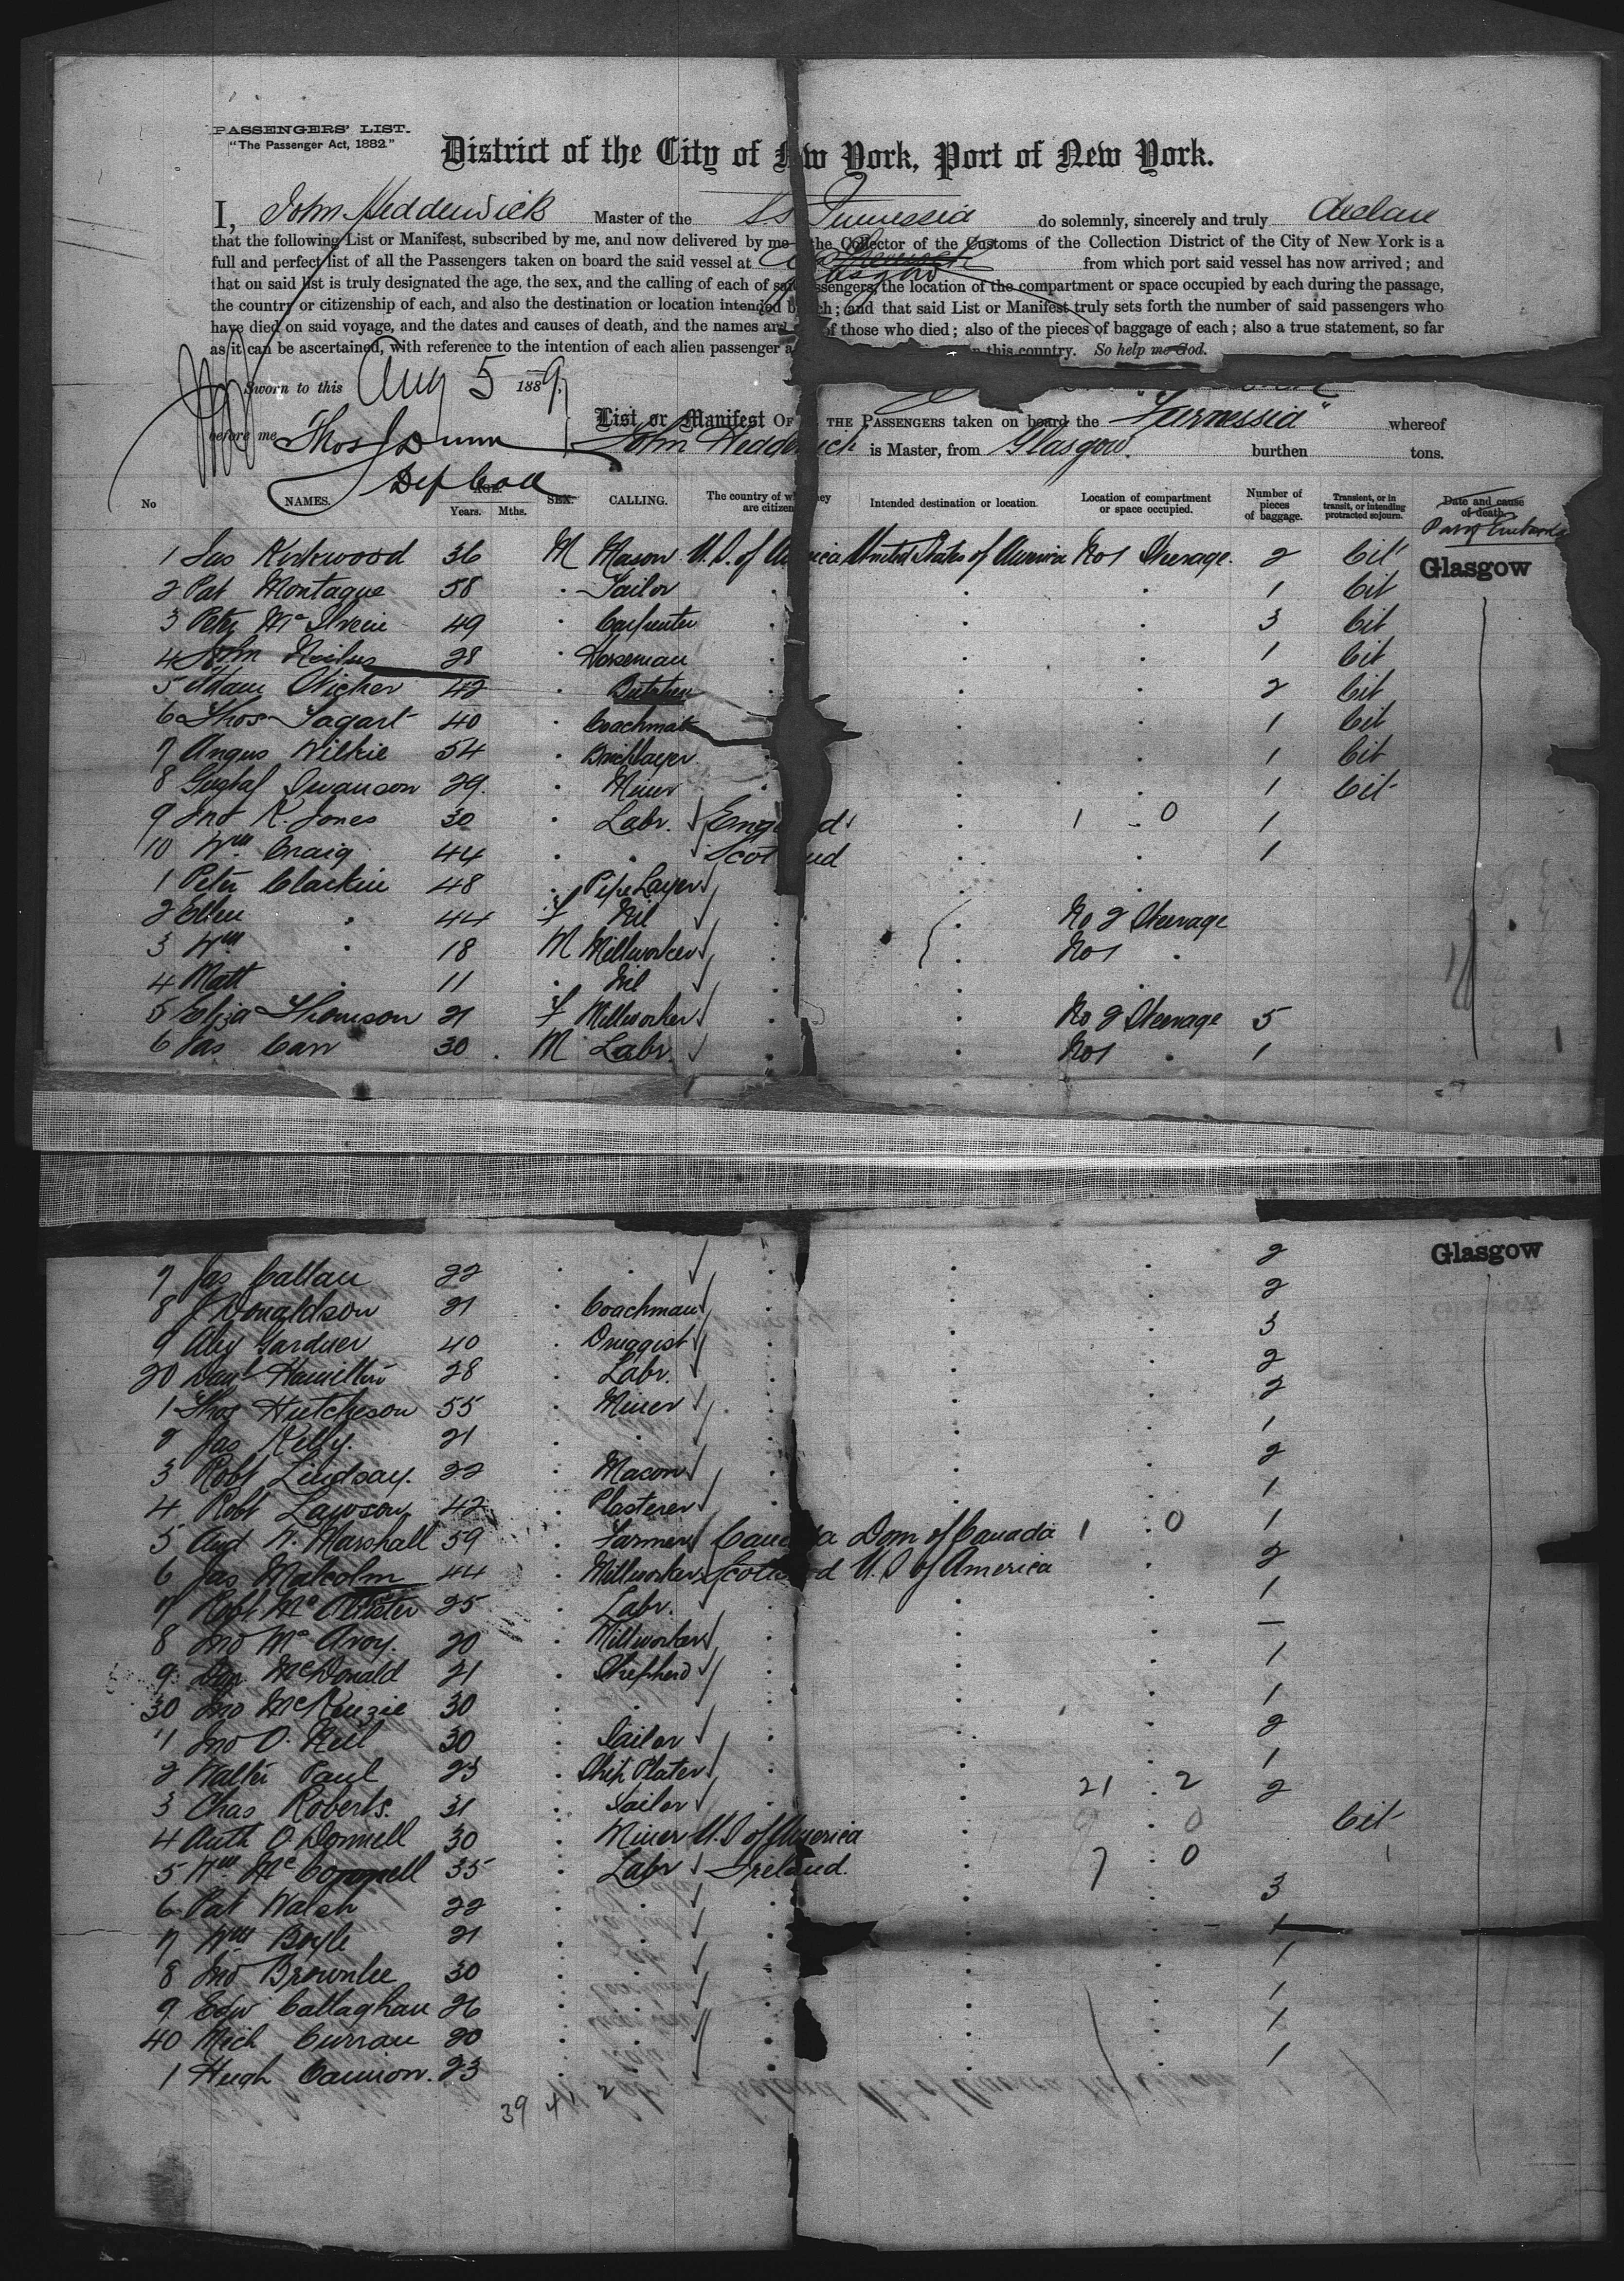 PASSENGERS' LIST.
"The Passenger Act, 1882"
District of the City of New York, Port of New York.
I, John Hedderwick Master of the S.S. Furnessia do solemnly, sincerely and truly declare
that the following List or Manifest, subscribed by me, and now delivered by me the Collector of the Customs of the Collection District of the City of New York is a
full and perfect list of all the Passengers taken on board the said vessel at Glasgow from which port said vessel has now arrived; and
that on said list is truly designated the age, the sex, and the calling of each of said passengers, the location of the compartment or space occupied by each during the passage,
the country or citizenship of each, and also the destination or location intended by each; and that said List or Manifest truly sets forth the number of said passengers who
have died on said voyage, and the dates and causes of death, and the names and of those who died; also of the pieces of baggage of each; also a true statement, so far
as it can be ascertained, with reference to the intention of each alien passenger a in this country. So help me God.
Sworn to this Aug 5 1889.
List or Manifest OF THE PASSENGERS taken on board the "Furnessia" whereof
before me Thos J Dunn John Hedderwick is Master, from Glasgow. burthen tons.
Dep Coll
No NAMES. AGE. Years. Mths. SEX. CALLING. The country of which they are citizens Intended destination or location. Location of compartment or space occupied. Number of pieces of baggage. Transient, or in transit, or intending protracted sojourn. Date and cause of death.
1 Jas Kirkwood 36 M Mason U.S. of America United States of America No 1 Steerage. 2 Cit Glasgow
2 Pat Montague 58 . Tailor . . . 1 Cit
3 Peter 49 . Carpenter . . . 3 Cit
4 John 28 . Horseman . . . 1 Cit
5 Adam 42 . Butcher . . 2 Cit
6 Thos Tagart 40 . Coachman . . 1 Cit
7 Angus Wilkie 54 . Bricklayer . . 1 Cit
8 Gustaf Swanson 29. . Miner . . . 1 Cit
9 Jno R. Jones 30 . Labr. England . 1 - 0 1
10 Wm Craig 44 . . Scotland . . 1
1 Peter Clarkin 48 . Pipe Layer . . .
2 Ellen . 44 F Nil . . No 2 Steerage
3 Wm . 18 M Millworker . . No 1 .
4 Matt . 11 . Nil . . .
5 Eliza Thomson 21 F Millworker . . No 2 Steerage 5
6 Jas Carr 30 . M Labr. . . No 1 . 1
7 Jas Callan 22 . . . . . 2 Glasgow
8 J Donaldson 21 . Coachman . . . 2
9 Alex Gardner 40 . Druggist . . . 3
20 Danl Hamilton 28 . Labr. . . . 2
1 Thos Hutcheson 55 . Miner . . . 2
2 Jas Kelly. 21 . . . . . 1
3 Robt Lindsay. 22 . Mason . . . 2
4 Robt Lawson 42 . Plasterer . . 1
5 And W. Marshall 59 . Farmer Canada Dom of Canada 1 . 0 1
6 Jas Malcolm 44 . Millworker Scotland U.S of America . 2
7 Robt McAlister 25 . Labr. . . . 1
8 Jno McAvoy. 20 . Millworker . . . —
9 Don McDonald 21 . Shepherd . . . 1
30 Jno McKenzie 30 . . . . . 1
1 Jno O. Neil 30 . Tailor . . . 2
2 Walter Paul 23 . Ship Plater . . . 1
3 Chas Roberts. 31 . Tailor . . 21 . 2 2
4 Anth O Donnell 30 . Miner U.S of America . 0 Cit
5 Wm McConnell 35 . Labr Ireland. . 7 . 0
6 Pat Walsh 22 . . . . . 3
7 Wm Boyle 21 . . . . . 1
8 Jno Brownlee 30 . . . . . 1
9 Edw Callaghan 26 . . . . . 1
40 Mich Curran 20 . . . . . 1
1 Hugh Cannon. 23 . . . . . 1
39